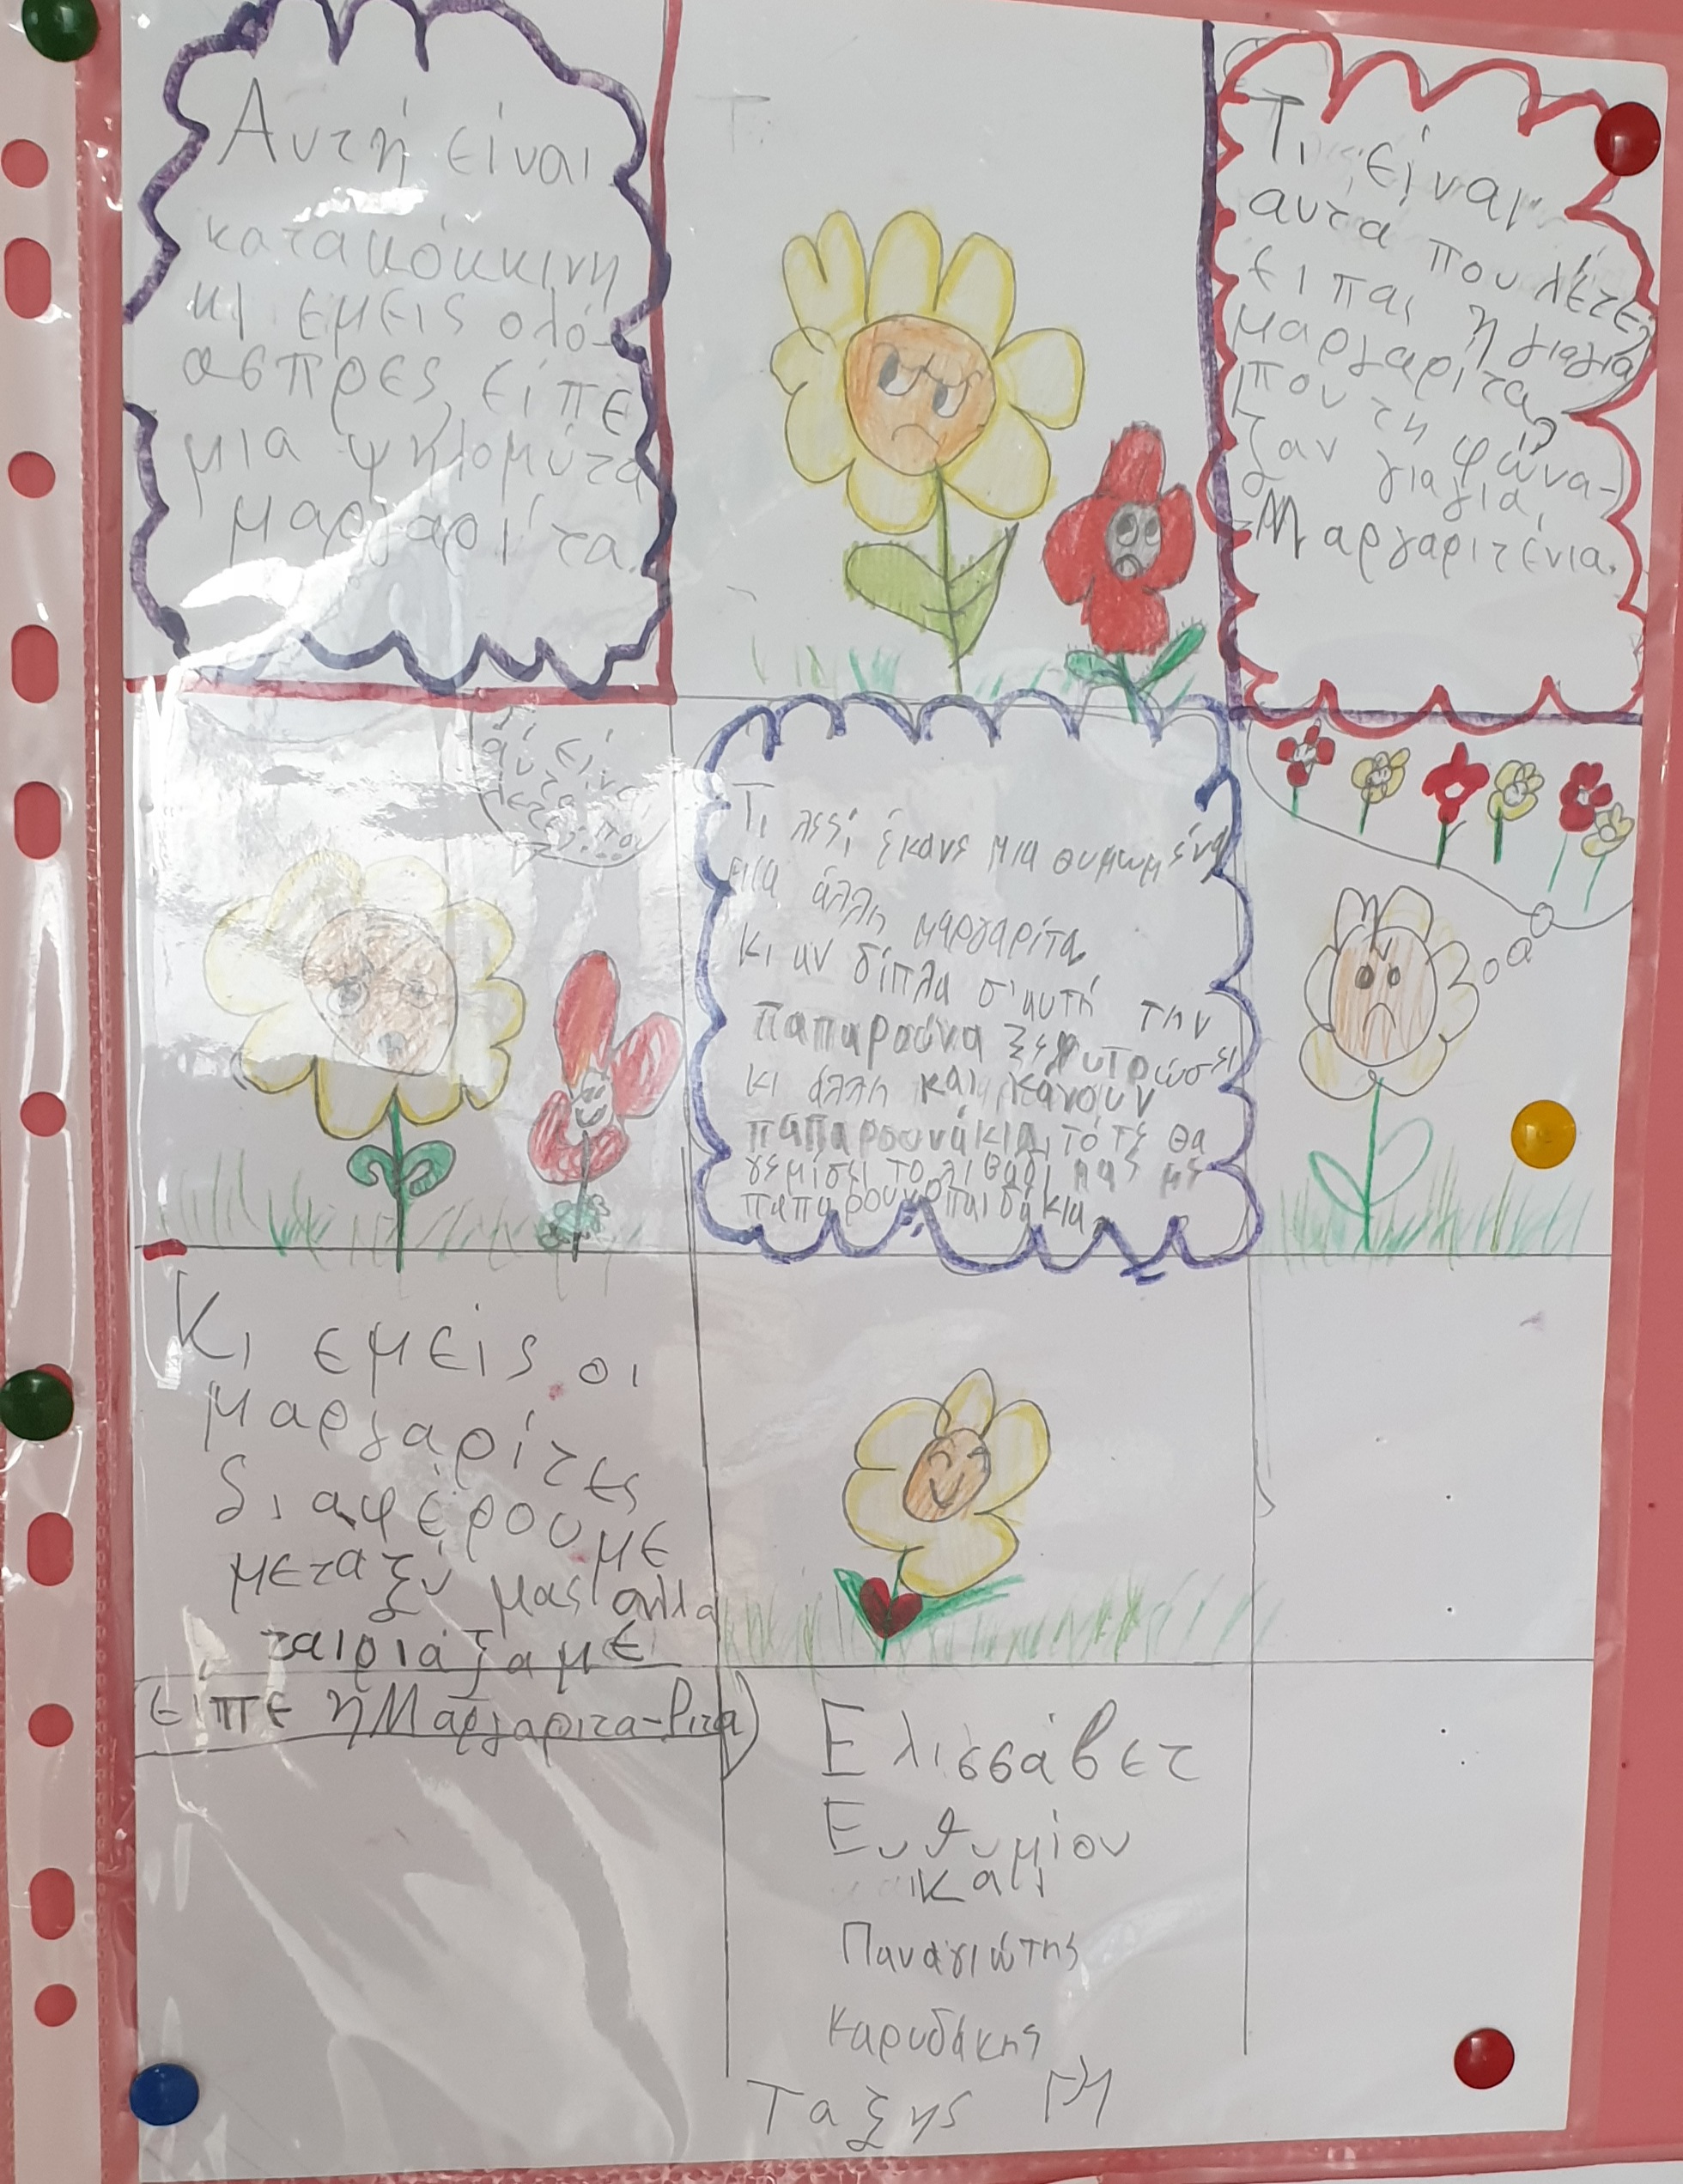 Αυτή είναι
κατακόκκινη
κι εμείς ολό-
ασπρες, είπε
μια ψηλομύτα
μαργαρίτα.
Τι
Τι είναι
αυτα που λέτε;
ειπαι η γιαγια
μαργαρίτα
που τη φώνα-
ζαν γιαγια
Μαργαριτένια.
Τι λες; έκανε μια θυμωμένη
μια άλλη μαργαρίτα
Κι αν δίπλα σ'αυτή την
παπαρούνα ξεφυτρώσει
κι άλλη και κάνουν
παπαρουνάκια, τότε θα
γεμίσει το λιβάδι μας με
παπαρουνοπαιδάκια.
Κι εμείς οι
μαργαρίτες
διαφέρουμε
μεταξύ μας αλλα
ταιριάζαμε
είπε η Μαργαριτα-Ριτα
Ελισσάβετ
Ευθυμίου
και
Παναγιώτης
Καρυδάκης
Ταξης